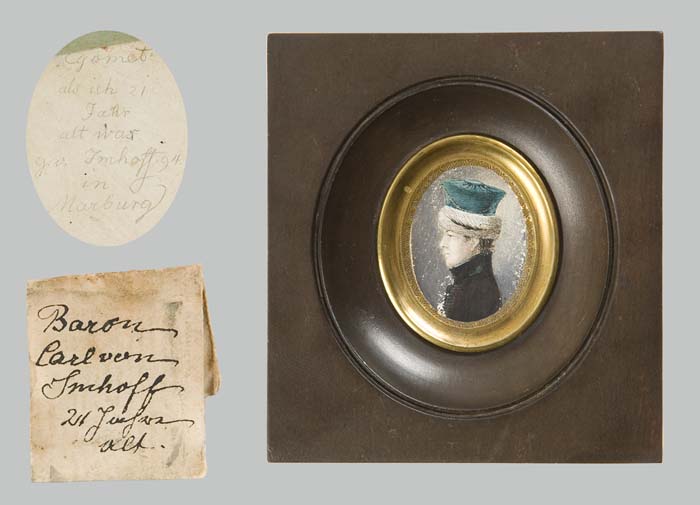 als ich 21
Jahr
alt war
g. v. Imhoff. 94
in
Marburg
Baron
Carl von
Imhoff
21 Jahre
alt.